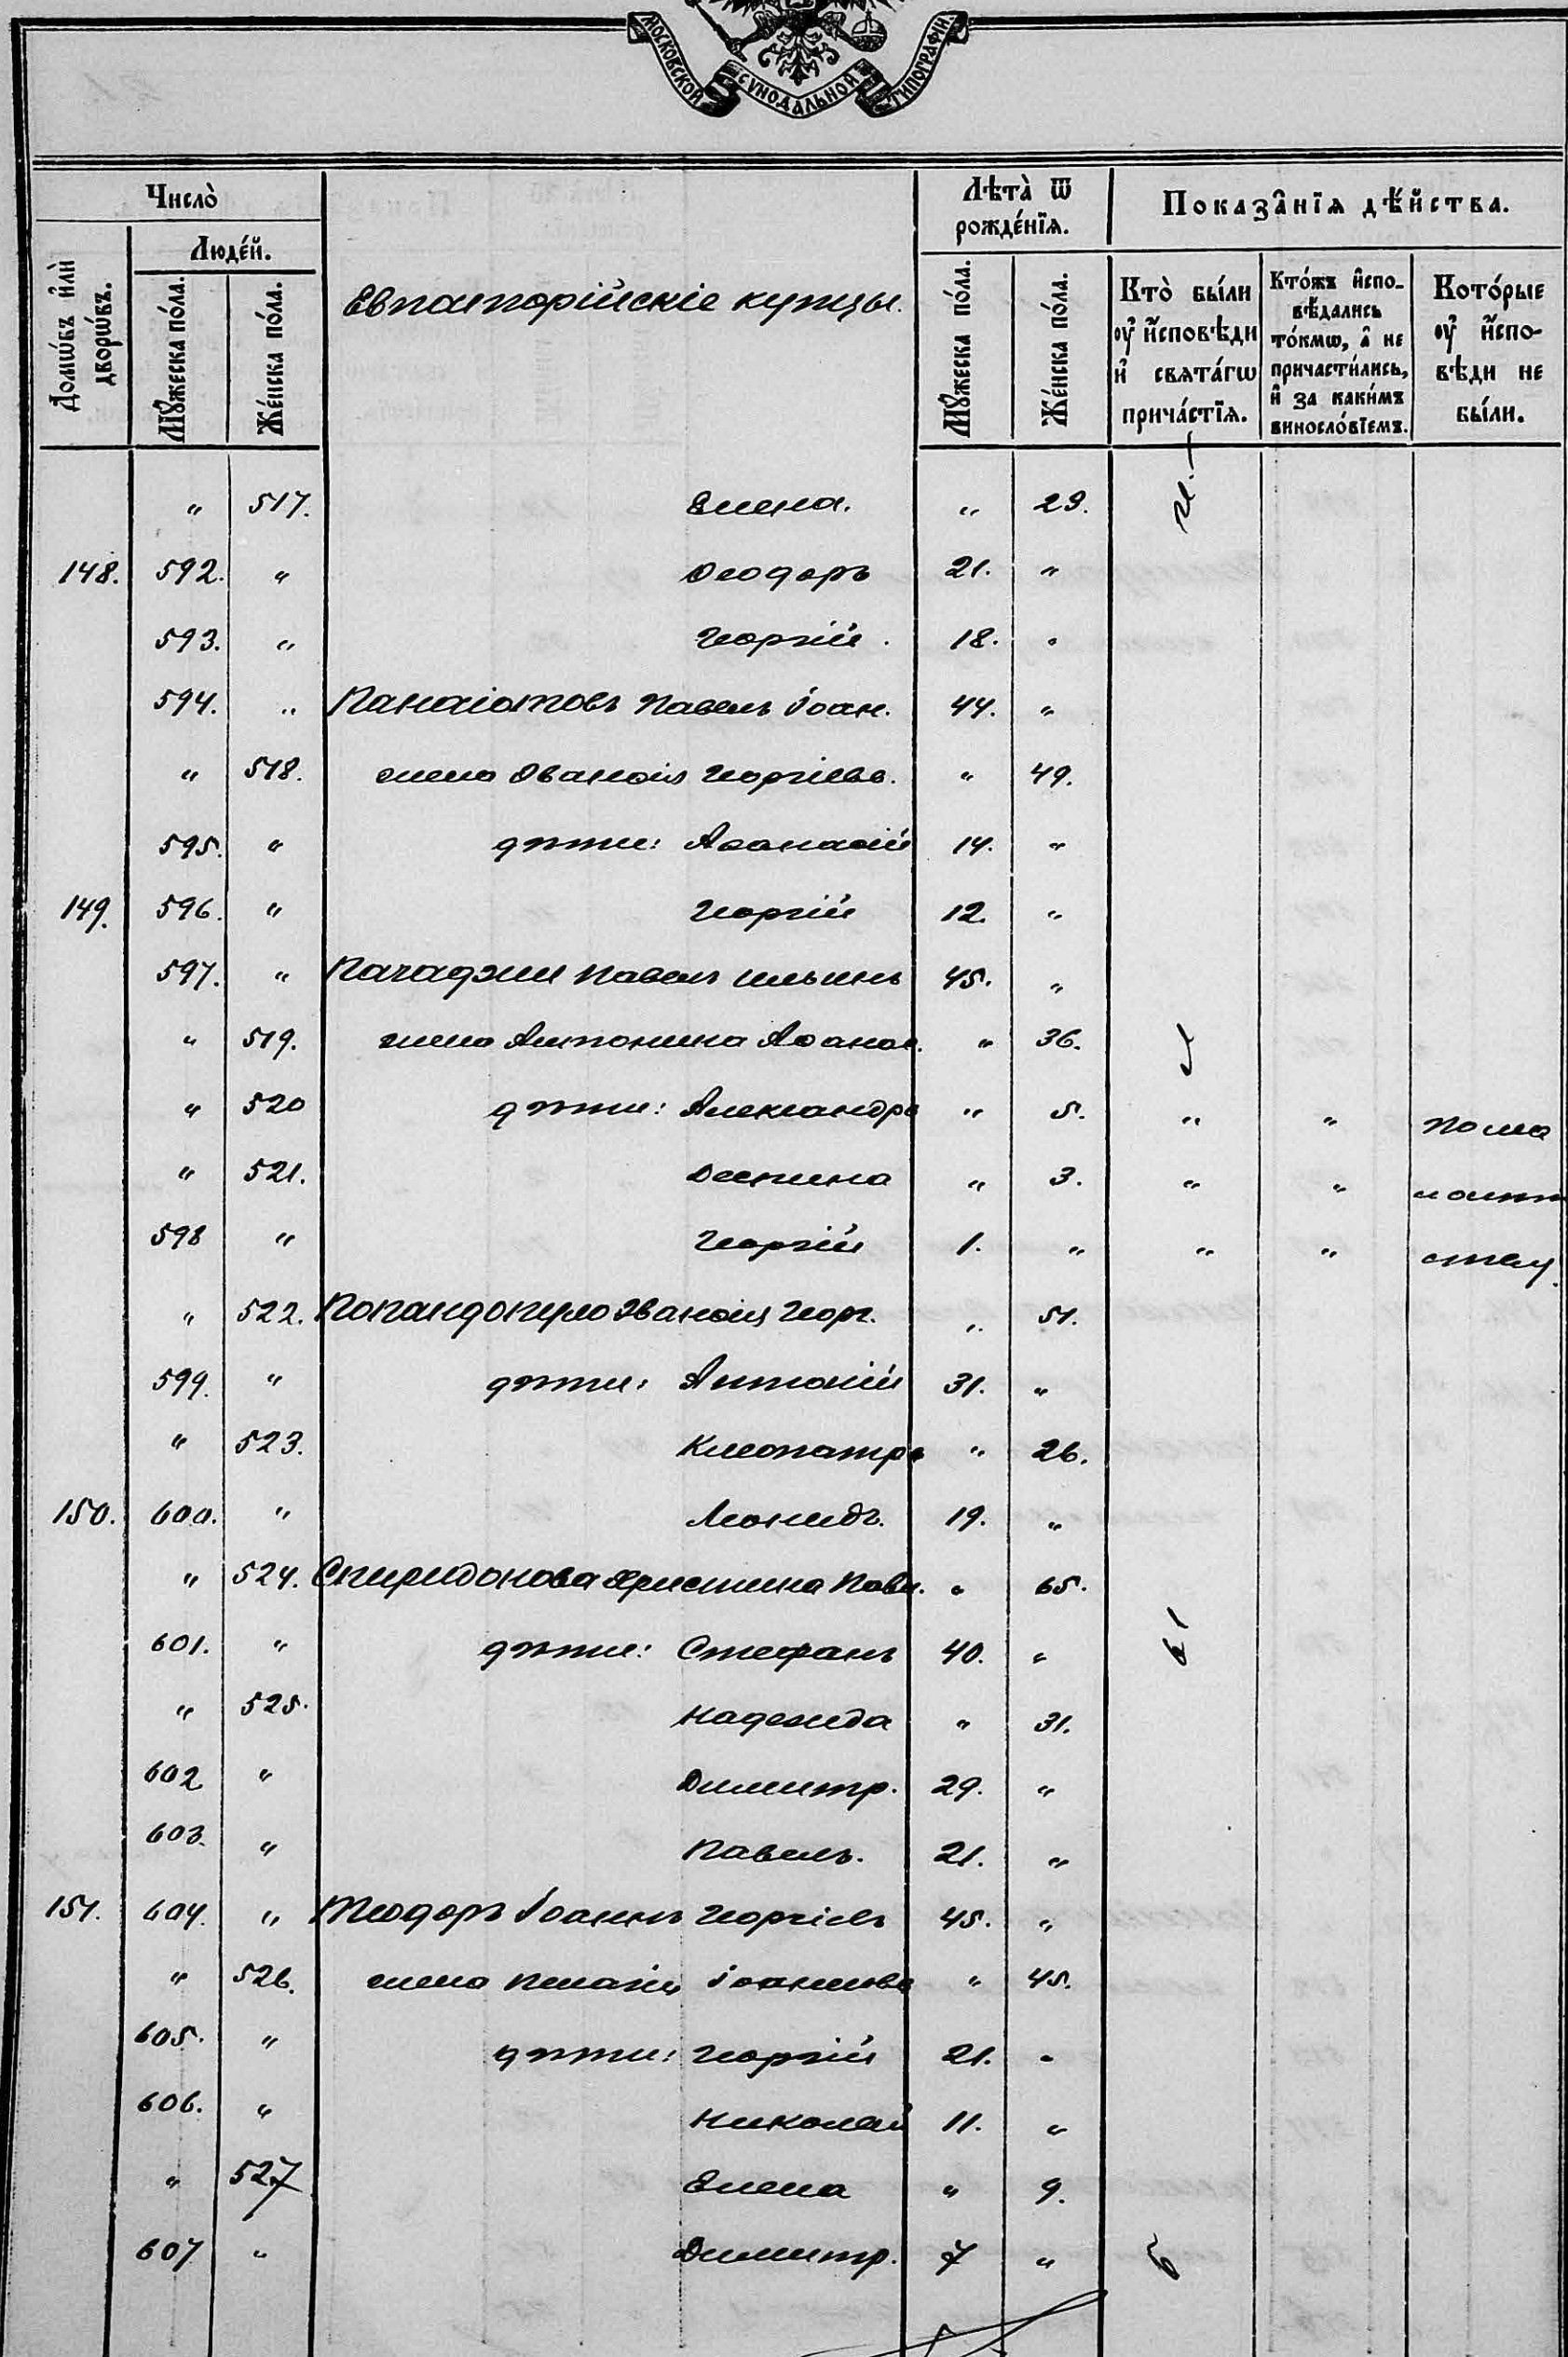 МОСКОВСКОЙ СѴНОДАЛЬНОЙ ТИПОГРАФІИ
Число̀
Люде́й.
Домѡ́въ и҆лѝ дворѡ́въ.
Мꙋ́жеска по́ла.
Же́нска по́ла.
Евпаторійскіе купцы.
Лѣта̀ ѿ рожде́нїѧ.
Мꙋ́жеска по́ла.
Же́нска по́ла.
Показа̑нїѧ дѣ́йства.
Кто̀ бы́ли ᲂу҆ и҆́сповѣди и҆ свѧта́гѡ прича́стїѧ.
Кто́жъ и҆спо-вѣ́дались то́кмѡ, а҆ не причасти́лись, и҆ за каки́мъ виносло́вїемъ.
Кото́рые ᲂу҆ и҆́спо-вѣди не бы́ли.
" 517. Елена. " 29.
148. 592. " Ѳеодоръ 21. "
593. " Георгій. 18. "
594. " Панаіотовъ Павелъ Іоан. 44. "
" 518. жена Ѳванѳія Георгіева. " 49.
595. " дѣти: Аѳанасій 14. "
149. 596. " Георгій 12. "
597. " Пачаджи Павелъ Ильинъ 45. "
" 519. жена Антонина Аѳанас. " 36.
" 520 дѣти: Александра " 5. " " по ма
" 521. Деспина " 3. " " лолѣт
598 " Георгій 1. " " " ству.
" 522. Попандопуло Эванѳія Георг. " 51.
599. " дѣти: Антоній 31. "
" 523. Клеопатра " 26.
150. 600. " Леонидъ. 19. "
" 524. Спиридонова Христина Павл. " 65.
601. " дѣти: Стефанъ 40. "
" 525. Надежда " 31.
602 " Димитр. 29. "
603. " Павелъ. 21. "
151. 604. " Теодоръ Іоаннъ Георгіевъ 45. "
" 526. жена Пелагія Іоаннова " 45.
605. " дѣти: Георгій 21. "
606. " Николай 11. "
" 527 Елена " 9.
607 " Димитр. 7 "